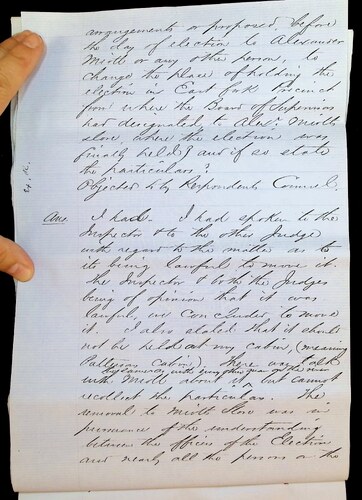 arrangements or proposed, before
the day of election to Alexander
Meott or any other person, to
change the place of holding the
election in East Oak Branch
from where the Board of Supervisors
had designated to Alexr
store, where the election was
finally held? and if so state
the particulars?
Objected to by Respondents Counsel.
Ans. I had. I had spoken to the
Inspector & to the other Judge
with regard to the matter as to
its being lawful to move it.
the Inspector & both the Judges
being of opinion that it was
lawful, we concluded to move
it. I also stated that it should
not be held at my cabin, (meaning
Pattersons cabin). There was talk
by some men on the river
with Meott about it, but cannot
recollect the particulars. The
removal to Meotts store was in
pursuance of the understanding
between the officers of the Election
and nearly all the persons on the